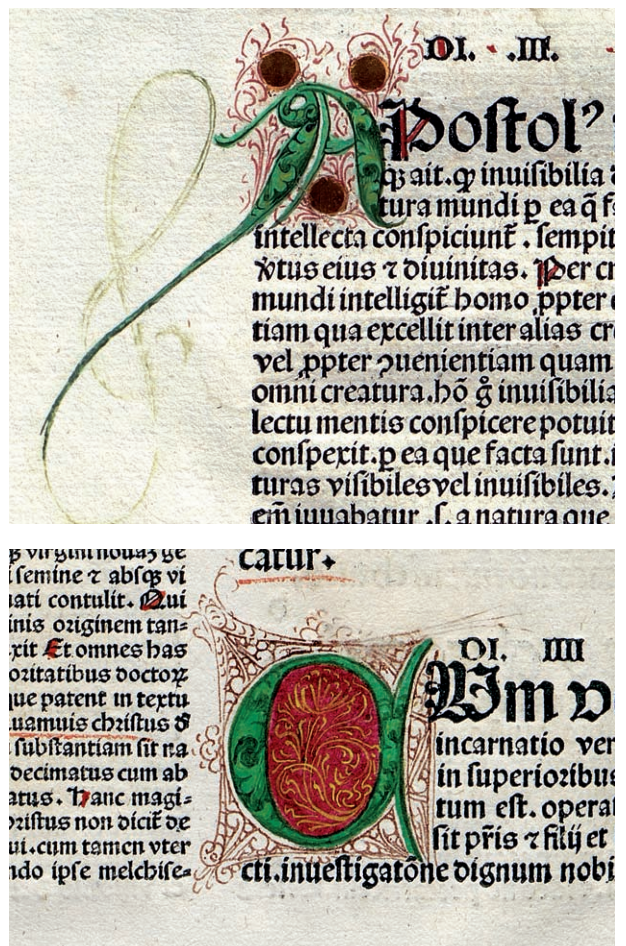 DI. .III.
Apostol⁹
qꝫ ait. ꝙ inuisibilia
tura mundi ꝑ ea q̄
intellecta conspiciunt̄. sempit
v̾tus eius ⁊ diuinitas. Per cr
mundi intelligit̄ homo ꝓpter
tiam qua excellit inter alias cr
vel ꝓpter ꝯuenientiam quam
omni creatura. hō g̊ inuisibilia
lectu mentis conspicere potuit
conspexit. ꝑ ea que facta sunt. i
turas visibiles vel inuisibiles.
em̄ iuuabatur .s. a natura que
catur.
virgini nouaꝫ ge
semine ⁊ absqꝫ vi
uati contulit. Qui
inis originem tan⸗
xit Et omnes has
oritatibus doctoꝝ
que patent in textu
uamuis christus d̾
substantiam sit na
decimatus cum ab
atus. Hanc magi⸗
christus non dicit̄ de
ui. cum tamen vter
ndo ipse melchise⸗
DI. IIII
QUm v
incarnatio ver
in superioribus
tum est. opera
sit pr̄is ⁊ filij et
cti. inuestigatōne dignum nobi